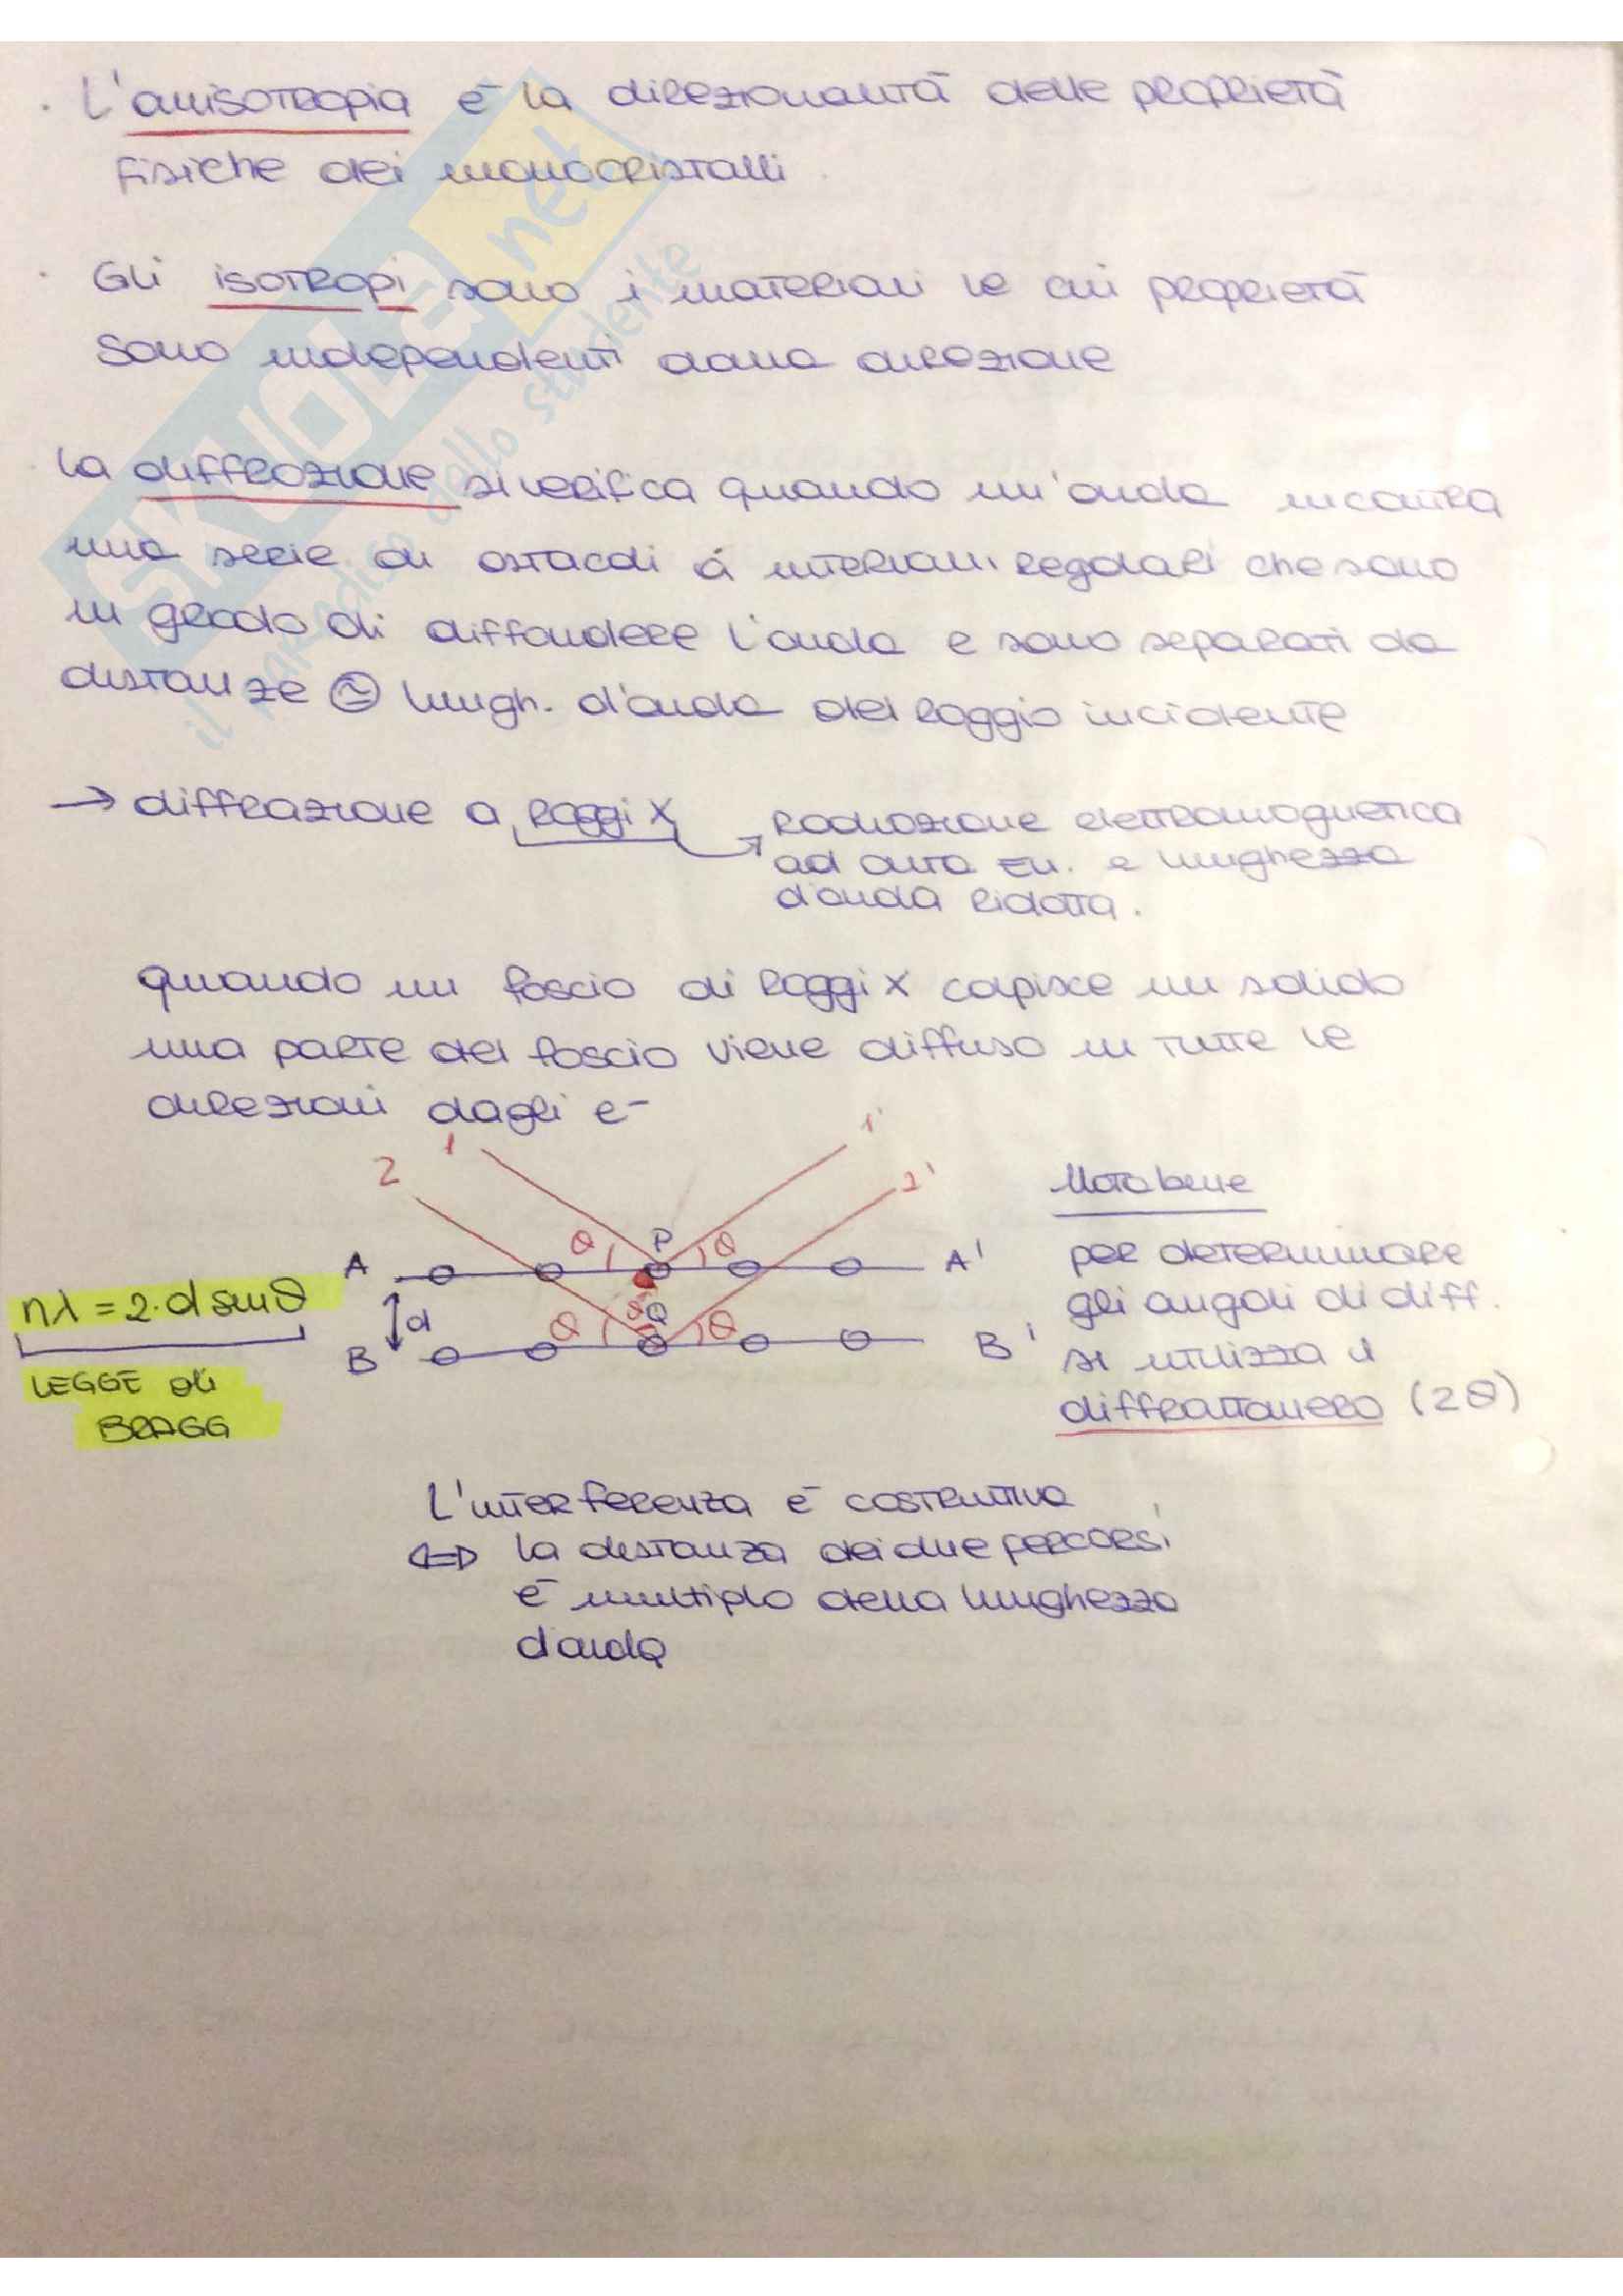 · L'anisotropia è la direzionalità delle proprietà
fisiche dei monocristalli.
· Gli isotropi sono i materiali le cui proprietà
sono indipendenti dalla direzione
· La diffrazione si verifica quando un'onda incontra
una serie di ostacoli a intervalli regolari che sono
in grado di diffondere l'onda e sono separati da
distanze ≃ lungh. d'onda del raggio incidente
→ diffrazione a raggi X
radiazione elettromagnetica
ad alta en. e lunghezza
d'onda ridotta.
quando un fascio di raggi X colpisce un solido
una parte del fascio viene diffuso in tutte le
direzioni dagli e-
1
1'
2
2'
θ P θ
A A'
nλ = 2·d sinθ
d
θ Q θ
B B'
LEGGE di
BRAGG
Nota bene
per determinare
gli angoli di diff.
si utilizza il
diffrattometro (2θ)
L'interferenza è costruttiva
⇔ la distanza dei due percorsi
è multiplo della lunghezza
d'onda
SKUOLA.net
il paradiso dello studente